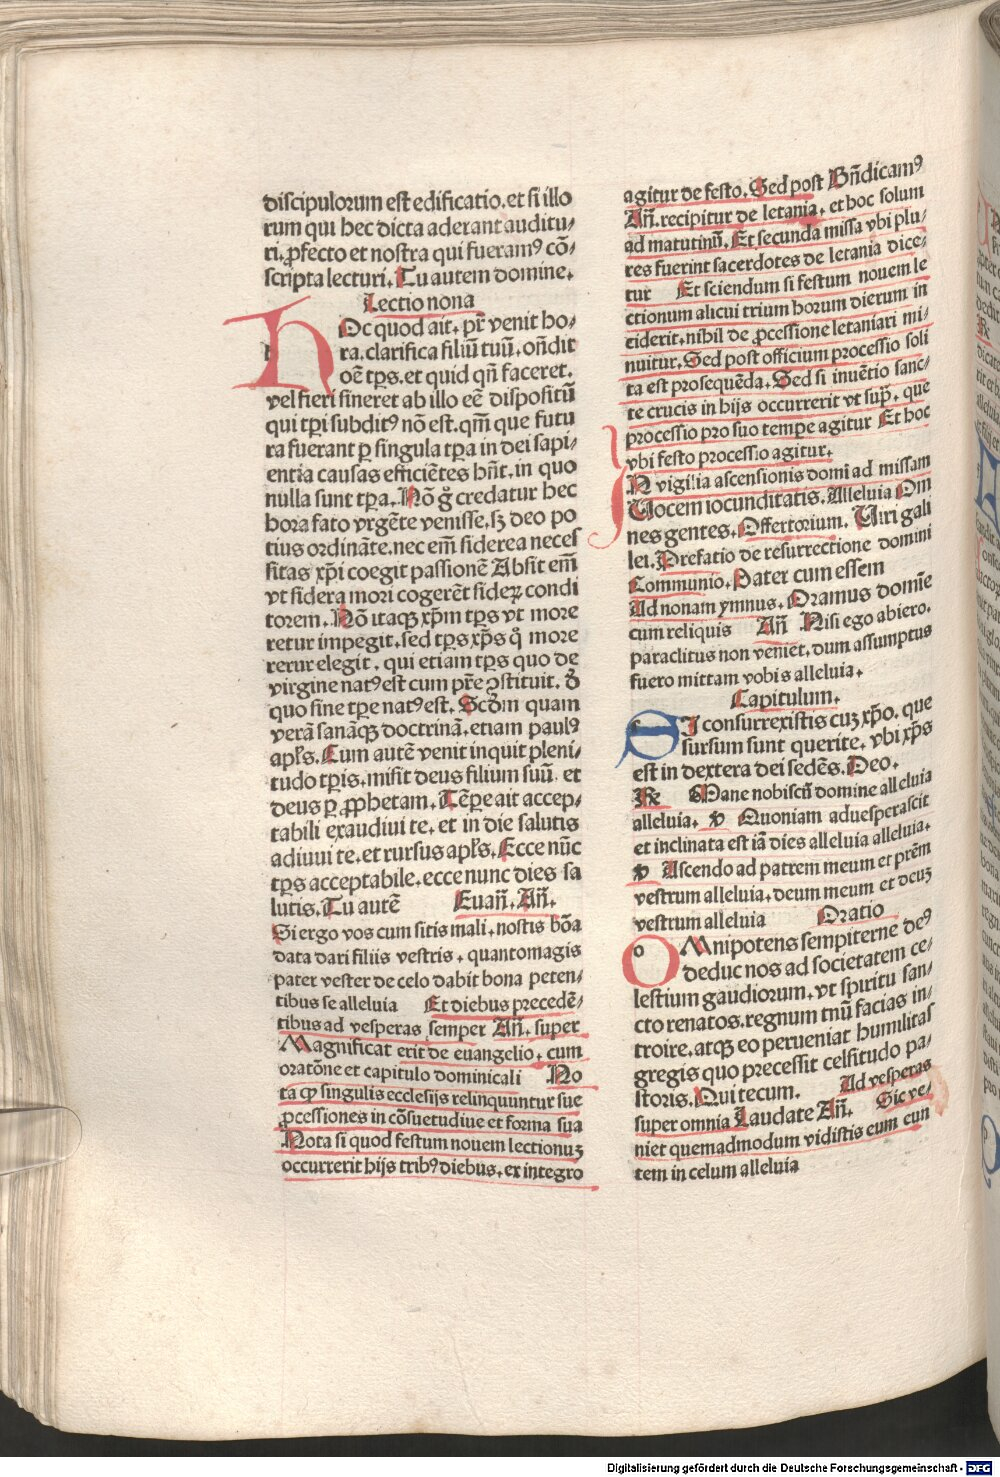 discipulorum est edificatio. et si illo
rum qui hec dicta aderant auditu⸗
ri. ꝓfecto et nostra qui fueramꝰ cō⸗
scripta lecturi. Tu autem domine.
Lectio nona
HOc quod ait. pr̄ venit ho⸗
ra. clarifica filiū tuū. oñdit
oē tp̄s. et quid qñ faceret.
vel fieri sineret ab illo eē dispositū
qui tp̄i subditꝰ nō est. qm̄ que futu
ra fuerant ꝑ singula tp̄a in dei sapi⸗
entia causas efficiētes hñt. in quo
nulla sunt tp̄a. Nō g̊ credatur hec
hora fato vrgēte venisse. sꝫ deo po
tius ordināte. nec em̄ siderea neces
sitas xp̄i coegit passionē Absit em̄
vt sidera mori cogerēt sideꝝ condi
torem. Nō itaqꝫ xp̄m tp̄s vt more
retur impegit. sed tp̄s xp̄s q̄ more
rerur elegit. qui etiam tp̄s quo de
virgine natꝰ est cum pr̄e ꝯstituit. d̄
quo sine tp̄e natꝰ est. Scd̄m quam
verā sanāqꝫ doctrinā. etiam paulꝰ
apl̄s. Cum autē venit inquit pleni⸗
tudo tp̄is. misit deus filium suū. et
deus ꝑ ꝓphetam. Tēpe ait accep⸗
tabili exaudiui te. et in die salutis
adiuui te. et rursus apl̄s. Ecce nūc
tp̄s acceptabile. ecce nunc dies sa
lutis. Tu autē Euañ. Añ.
Si ergo vos cum sitis mali. nostis bōa
data dari filiis vestris. quantomagis
pater vester de celo dabit bona peten⸗
tibus se alleluia Et diebus precedē⸗
tibus ad vesperas semper Añ. super
Magnificat erit de euangelio. cum
oratōne et capitulo dominicali No
ta ꝙ singulis ecclesijs relinquuntur sue
ꝓcessiones in cōsuetudiue et forma sua
Nota si quod festum nouem lectionuꝫ
occurrerit hijs tribꝰ diebus. ex integro
agitur de festo. Sed post Bñdicamꝰ
Añ. recipitur de letania. et hoc solum
ad matutinū. Et secunda missa vbi plu⸗
res fuerint sacerdotes de letania dice⸗
tur Et sciendum si festum nouem le
ctionum alicui trium horum dierum in
ciderit. nihil de ꝓcessione letaniari mi⸗
nuitur. Sed post officium processio soli
ta est prosequēda. Sed si inuētio sanc⸗
te crucis in hijs occurrerit vt supͣ. que
processio pro suo tempe agitur Et hoc
vbi festo processio agitur.
IN vigilia ascensionis domi ad missam
Uocem iocunditatis. Alleluia Om
nes gentes. Offertorium. Uiri gali
lei. Prefatio de resurrectione domini
Communio. Pater cum essem
Ad nonam ymnus. Oramus domīe
cum reliquis Añ Nisi ego abiero.
paraclitus non veniet. dum assumptus
fuero mittam vobis alleluia.
Capitulum.
SI consurrexistis cuꝫ xp̄o. que
sursum sunt querite. vbi xp̄s
est in dextera dei sedēs. Deo.
℟ Mane nobiscū domine alleluia
alleluia. ℣ Quoniam aduesperascit
et inclinata est iā dies alleluia alleluia.
℣ Ascendo ad patrem meum et prēm
vestrum alleluia. deum meum et deuꝫ
vestrum alleluia Oratio
OMnipotens sempiterne deꝰ
deduc nos ad societatem ce⸗
lestium gaudiorum. vt spiritu san⸗
cto renatos. regnum tuū facias in⸗
troire. atqꝫ eo perueniat humilitas
gregis quo precessit celsitudo pa⸗
storis. Qui tecum. Ad vesperas
super omnia Laudate Añ. Sic ve⸗
niet quemadmodum vidistis eum eun
tem in celum alleluia
Digitalisierung gefördert durch die Deutsche Forschungsgemeinschaft - DFG